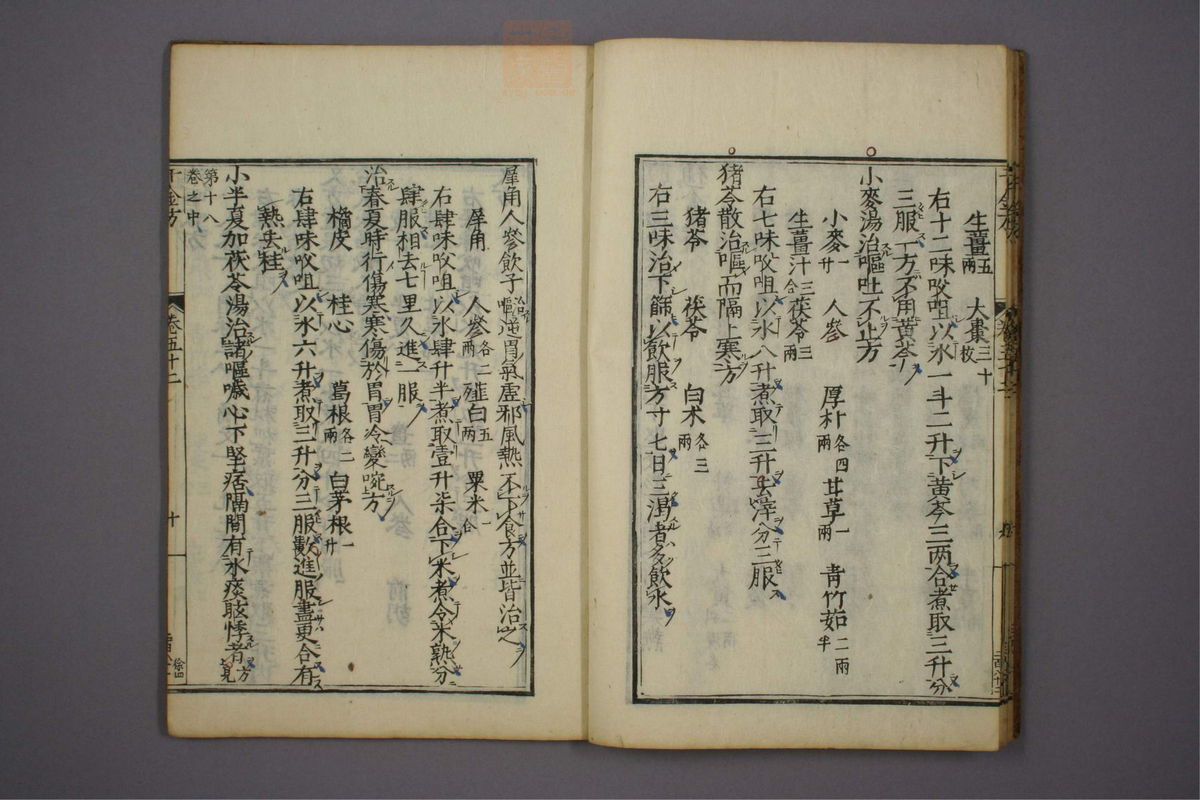 生薑五兩　大棗三十枚
右十二味㕮咀以水一斗二升下黃芩三兩合煮取三升分
三服一方不用黃芩
小麥湯治嘔吐不止方
小麥一升　人參　厚朴各四兩　甘草一兩　青竹茹二兩半
生薑汁三合　茯苓三兩
右七味㕮咀以水八升煮取三升去滓分三服
猪苓散治嘔而隔上寒方
猪苓　茯苓　白术各三兩
右三味治下篩以飲服方寸匕日三渴者多飲水
犀角人參飲子治嘔逆胃氣虛邪風熱不下食方並皆治之
犀角　人參各二兩　薤白五兩　粟米一合
右肆味㕮咀以水肆升半煮取壹升柒合下米煮令米熟分
肆服相去七里久進一服
治春夏時行傷寒寒傷於胃胃冷變啘方
橘皮　桂心　葛根各二兩　白茅根一升
右肆味㕮咀以水六升煮取三升分三服數進服盡更合有
熱去桂
小半夏加茯苓湯治諸嘔噦心下堅痞隔間有水痰眩悸者方見
第十八
卷之中
千金方
卷五十二
十
徐四